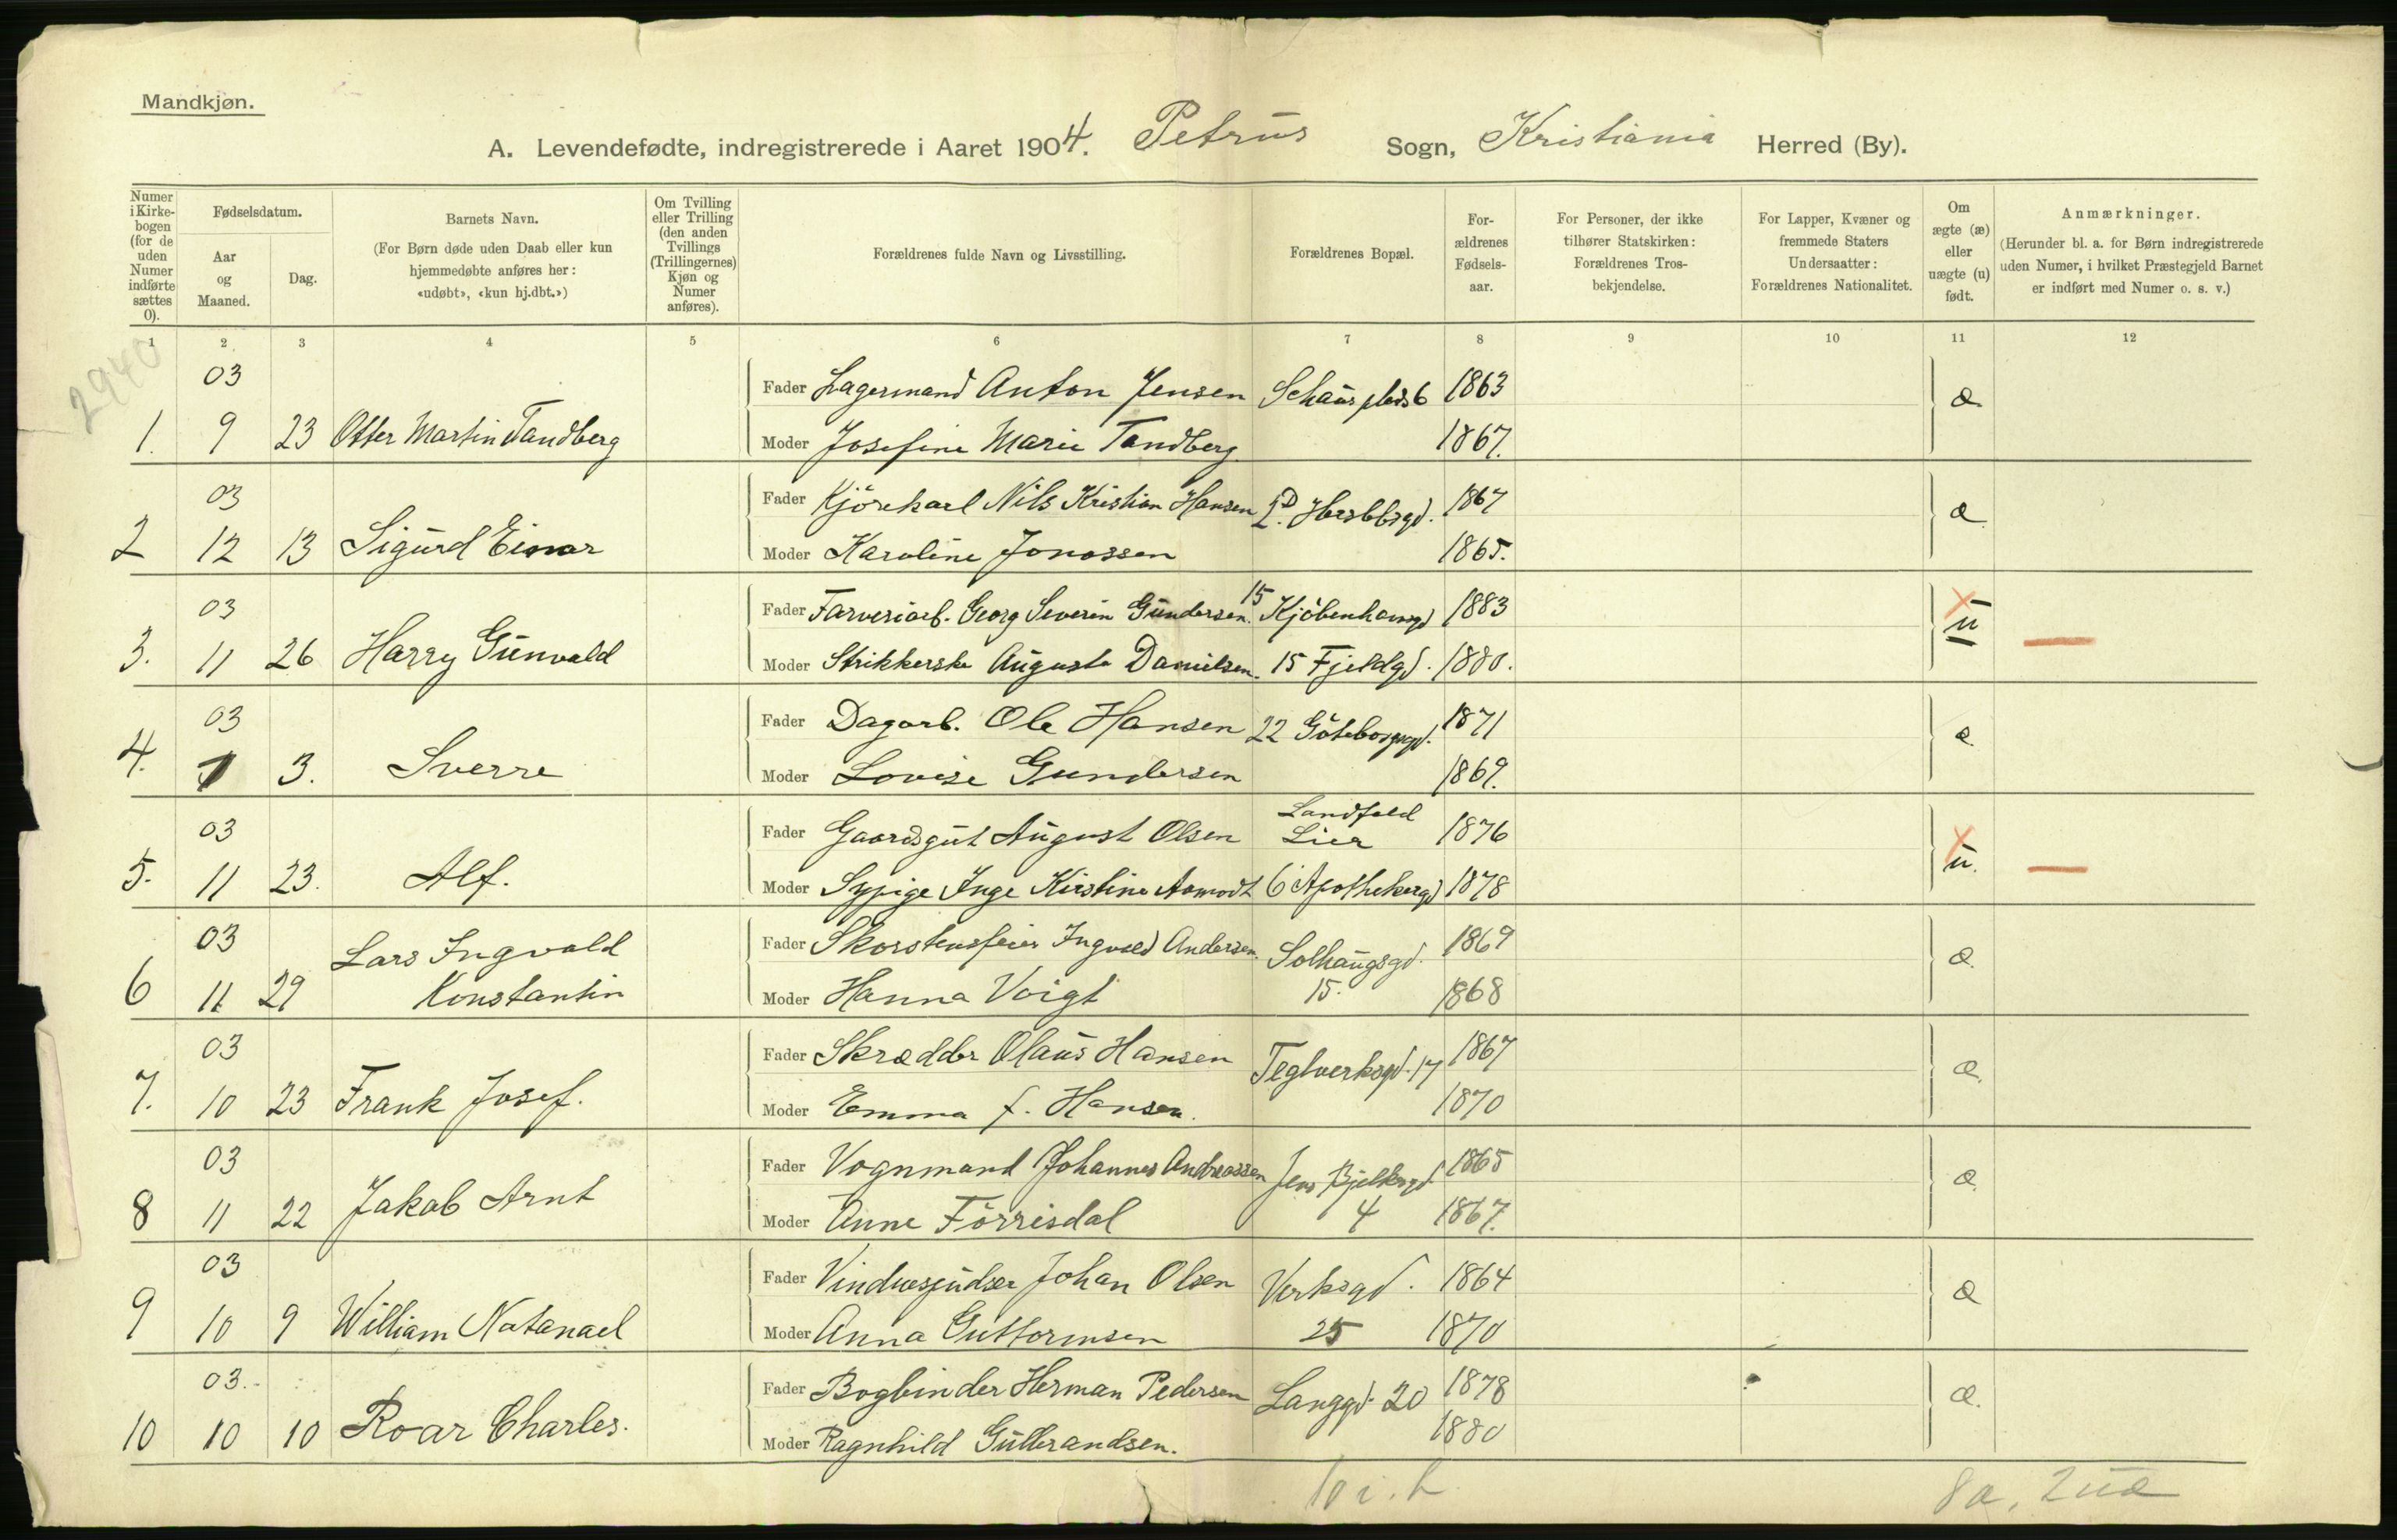 Mandkjøn.
A. Levendefødte, indregistrerede i Aaret 1904. Petrus Sogn, Kristiania Herred (By).
Numer i Kirke-bogen (for de uden Numer indførte sættes 0).
Fødselsdatum.
Aar og Maaned.
Dag.
Barnets Navn.
(For Børn døde uden Daab eller kun hjemmedøbte anføres her: «udøbt», «kun hj.dbt.»)
Om Tvilling eller Trilling (den anden Tvillings (Trillingernes) Kjøn og Numer anføres).
Forældrenes fulde Navn og Livsstilling.
Forældrenes Bopæl.
For-ældrenes Fødsels-aar.
For Personer, der ikke tilhører Statskirken: Forældrenes Tros-bekjendelse.
For Lapper, Kvæner og fremmede Staters Undersaatter: Forældrenes Nationalitet.
Om ægte (æ) eller uægte (u) født.
Anmærkninger.
(Herunder bl. a. for Børn indregistrerede uden Numer, i hvilket Præstegjeld Barnet er indført med Numer o. s. v.)
1 2 3 4 5 6 7 8 9 10 11 12
2940
03 Fader Lagermand Anton Jensen Schaus plads 6 1863 æ
1. 9 23 Otter Martin Tandberg Moder Josefine Marie Tandberg 1867.
03 Fader Kjörekarl Nils Kristian Hansen 1867 æ
2 12 13 Sigurd Einar Moder Karoline Jonassen 1865.
03 Fader Farveriarb. Georg Severin Gundersen. 15 Kjöbenhavngd 1883 u
3. 11 26 Harry Gunvald Moder Strikkerske Augusta Danielsen. 15 Fjeldgd. 1880.
03 Fader Dagarb. Ole Hansen 22 Göteborggd. 1871 æ
4. 3. Sverre Moder Lovise Gundersen 1869.
03 Fader Gaardsgut August Olsen Landfald Lier 1876 u.
5. 11 23. Alf. Moder Sypige Inga Kirstine Aamodt 6 Apothekergd 1878
03 Lars Ingvald Fader Skorstensfeier Ingvald Andersen. Solhaugsgd. 1869 æ
6 11 29 Konstantin Moder Hanna Voigt 15. 1868
03 Fader Skrædder Olaus Hansen Teglverksgd. 17 1867 æ.
7. 10 23 Frank Josef. Moder Emma f. Hansen. 1870
03 Fader Vognmand Johannes Andreassen Jens Bjelkesgd. 1865 æ
8 11 22 Jakob Arnt Moder Anne Förrisdal 4 1867.
03 Fader Vinduespudser Johan Olsen Verksgd. 1864 æ
9 10 9 William Natanael Moder Anna Guttormsen 25 1870
03. Fader Bogbinder Herman Pedersen Langgd. 20 1878 æ.
10 10 10 Roar Charles. Moder Ragnhild Gulbrandsen. 1880
8æ, 2uæ